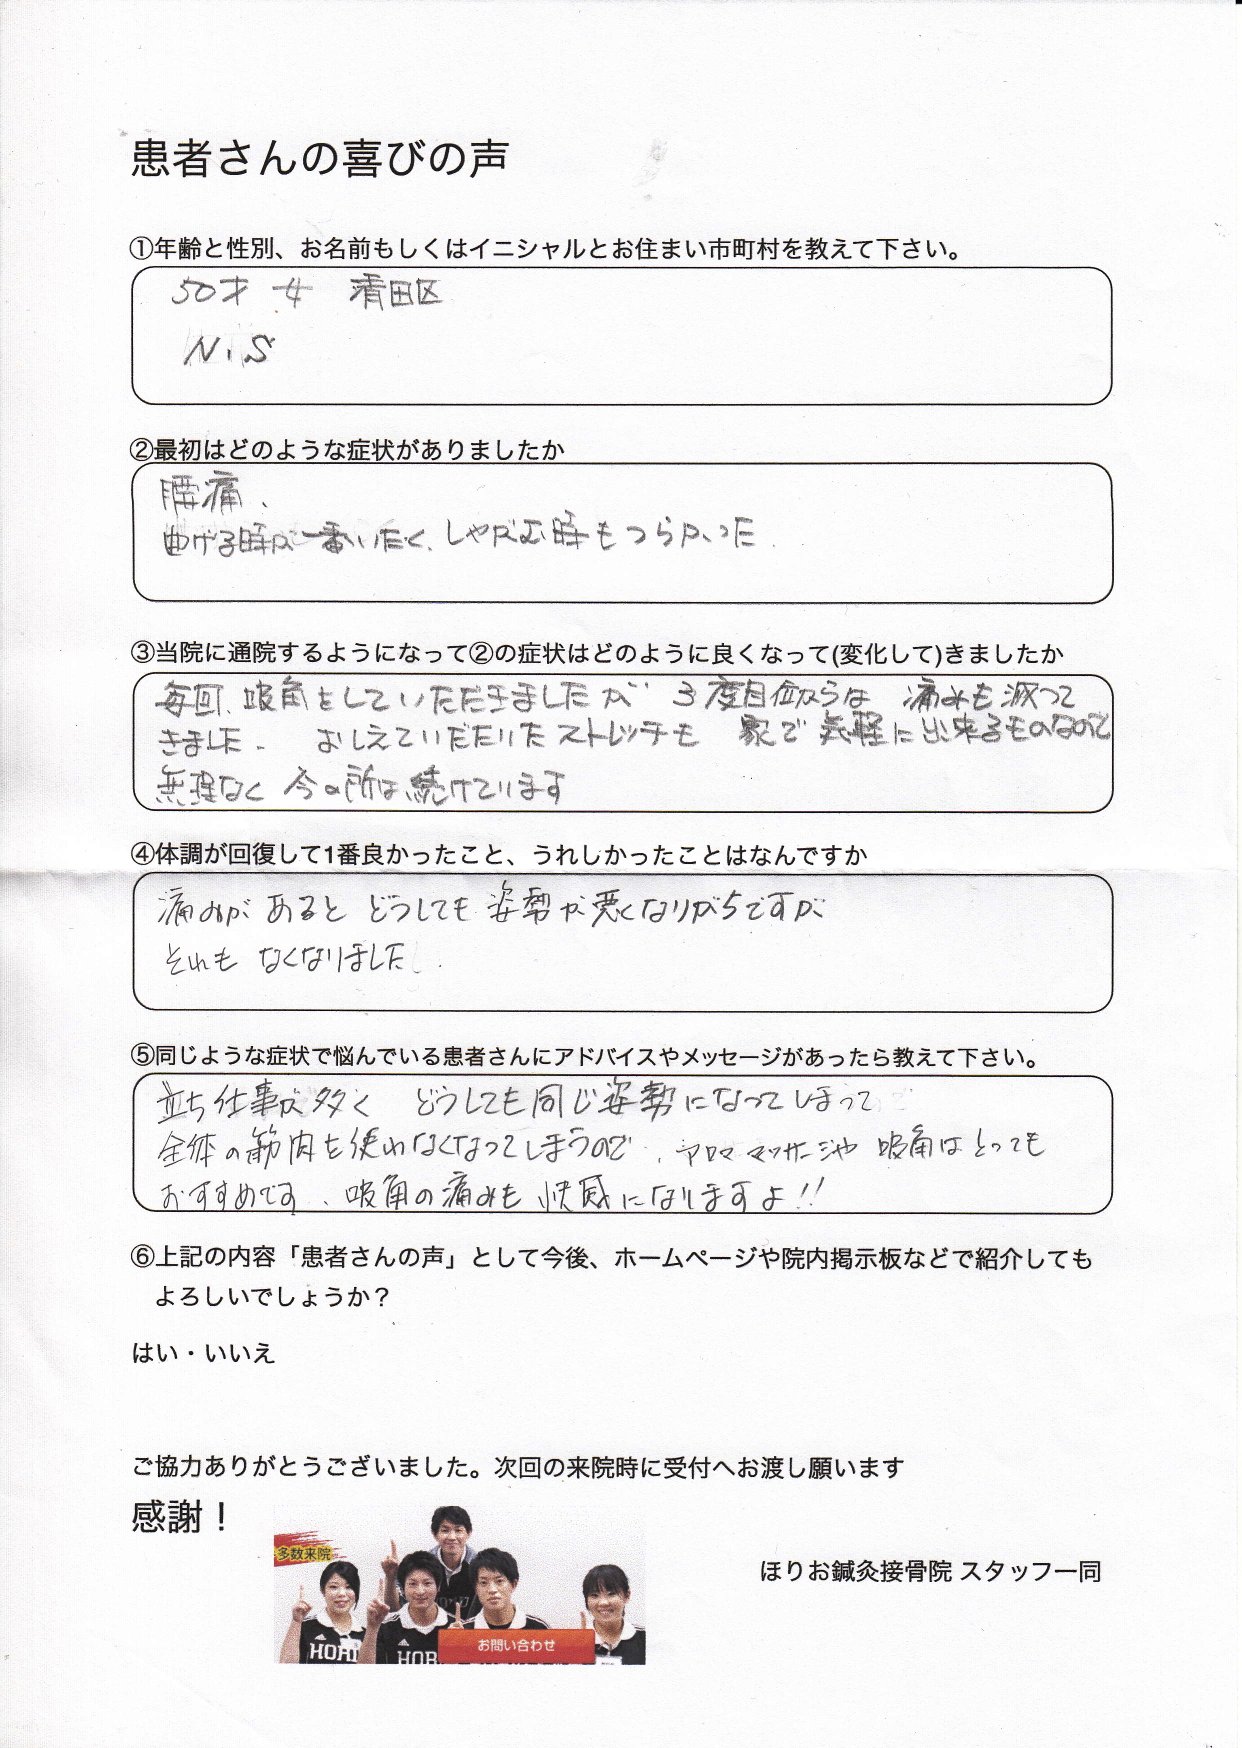 患者さんの喜びの声
①年齢と性別、お名前もしくはイニシャルとお住まい市町村を教えて下さい。
50才 女 清田区
N.S
②最初はどのような症状がありましたか
腰痛、
曲げる時が一番いたく、しゃがむ時もつらかった
③当院に通院するようになって②の症状はどのように良くなって(変化して)きましたか
毎回、吸角をしていただきましたが 3度目位からは 痛みも減って
きました。 おしえていただいたストレッチも 家で気軽に出来るものなので
無理なく 今の所は続けています
④体調が回復して1番良かったこと、うれしかったことはなんですか
痛みが あると どうしても 姿勢が悪くなりがちですが
それも なくなりました。
⑤同じような症状で悩んでいる患者さんにアドバイスやメッセージがあったら教えて下さい。
立ち仕事が多く どうしても同じ姿勢になってしまって
全体の筋肉を使わなくなってしまうので、アロママッサージや 吸角はとっても
おすすめです、吸角の痛みも 快感になりますよ!!
⑥上記の内容「患者さんの声」として今後、ホームページや院内掲示板などで紹介しても
よろしいでしょうか?
はい・いいえ
ご協力ありがとうございました。次回の来院時に受付へお渡し願います
感謝!
多数来院
HORI
HOR
お問い合わせ
ほりお鍼灸接骨院 スタッフ一同